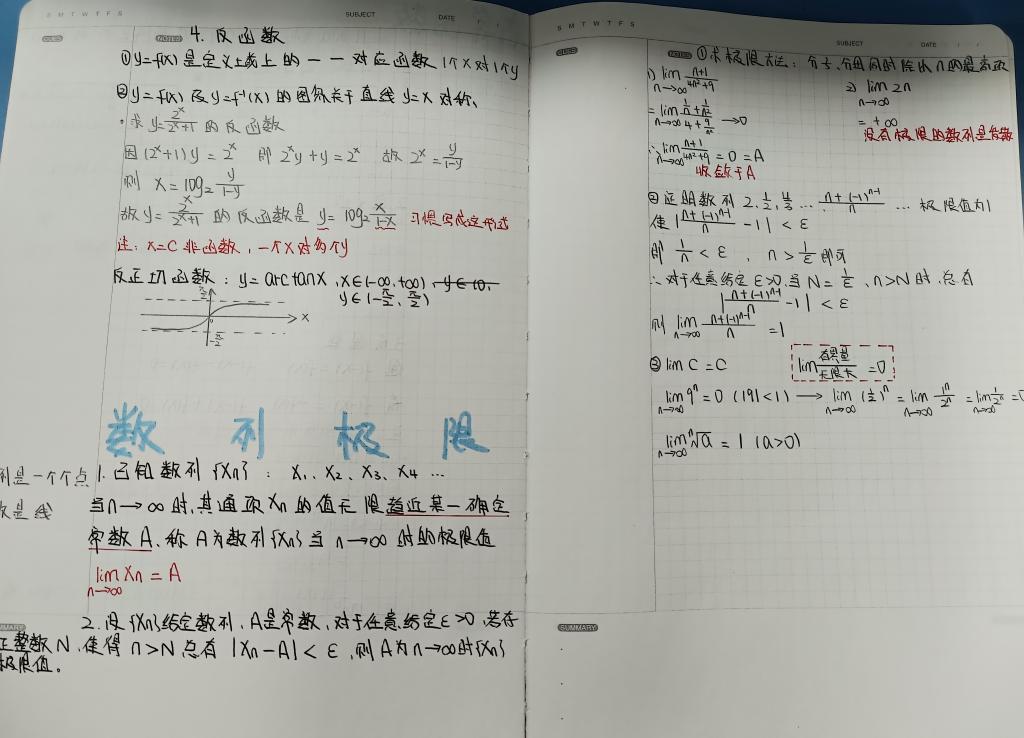 S M T W T F S SUBJECT DATE / /
NOTES 4. 反函数
①y=f(x)是定义域上的一一对应函数 1个x对1个y
②y=f(x)及y=f⁻¹(x)的图像关于直线y=x对称、
·求y=2^x/(2^x+1)的反函数
因(2^x+1)y=2^x 即2^x y+y=2^x 故2^x=y/(1-y)
则 x=log₂ y/(1-y)
故y=2^x/(2^x+1)的反函数是 y=log₂ x/(1-x) 习惯写成这形式
注: x=C非函数,一个x对多个y
反正切函数: y=arctanx, x∈(-∞,+∞)
y∈(-π/2, π/2)
π/2
x
-π/2
数列极限
列是一个个点
数是线
1. 已知数列{Xn}: X₁、X₂、X₃、X₄ …
当n→∞时,其通项Xn的值无限趋近某一确定
常数A、称A为数列{Xn}当n→∞时的极限值
lim n→∞ Xn=A
SUMMARY
2. 设{Xn}给定数列,A是常数,对于任意给定ε>0,若存
正整数N,使得n>N总有|Xn-A|<ε,则A为n→∞时{Xn}
极限值。
S M T W T F S SUBJECT DATE / /
NOTES ①求极限大法: 分子、分母同时除以n的最高次
1) lim n→∞ (n+1)/(4n²+9)
= lim n→∞ (1/n+1/n²)/(4+9/n²) →0
∴ lim n→∞ (n+1)/(4n²+9)=0=A
收敛于A
2) lim n→∞ 2n
=+∞
没有极限的数列是发散
②证明数列2, 1/2, 4/3 … (n+(-1)^(n-1))/n … 极限值为1
使 |(n+(-1)^(n-1))/n -1|<ε
即 1/n<ε, n>1/ε即可
∴对于任意给定ε>0,当N=1/ε、n>N时,总有
|(n+(-1)^(n-1))/n -1|<ε
则 lim n→∞ (n+(-1)^(n-1))/n =1
③lim C=C
lim 有界量/无限大=0
lim n→∞ q^n=0 (|q|<1) → lim n→∞ (1/2)^n= lim n→∞ 1^n/2^n= lim n→∞ 1/2^n=0
lim n→∞ ⁿ√a=1 (a>0)
SUMMARY